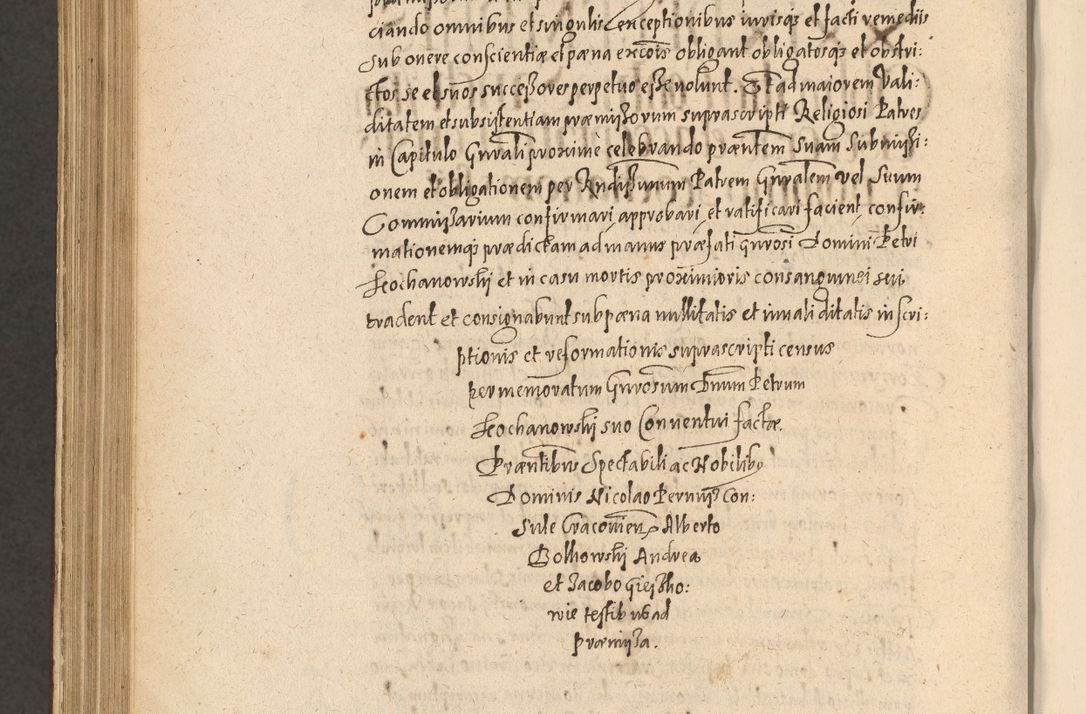 ciando omnibus et singulis conceptionibus iurisq3 et facti remediis
sub onere conscientiæ et pæna excois obligant obligatosq3 et obstri:
ctos se et suos successores perpetuo esse volunt. Et ad maiorem Vali:
ditatem et subsistentiam præmissorum suprascripti Religiosi Patres
in Capitulo Gnrali proxime celebrando præntem suam submissi:
onem et obligationem per Rndissimum Patrem Gnralem vel suum
Commissarium confirmari, approbari, et ratificari facient, confir:
mationemq3 prædictam ad manus præfati gnrosi Domini Petri
Kochanowski et in casu mortis proximioris consanguinei sui
tradent et consignabunt sub pæna nullitatis et inualiditatis inscri:
ptionis et reformationis suprascripti census
per memoratum Gnrosum Dnum Petrum
Kochanowski suo Conuentui factæ.
Præntibus Spectabili ac Nobilibus
Dominis Nicolao Pernus Con:
sule Cracouien Alberto
Andrea
et Jacobo
wie testibus ad
præmissa.